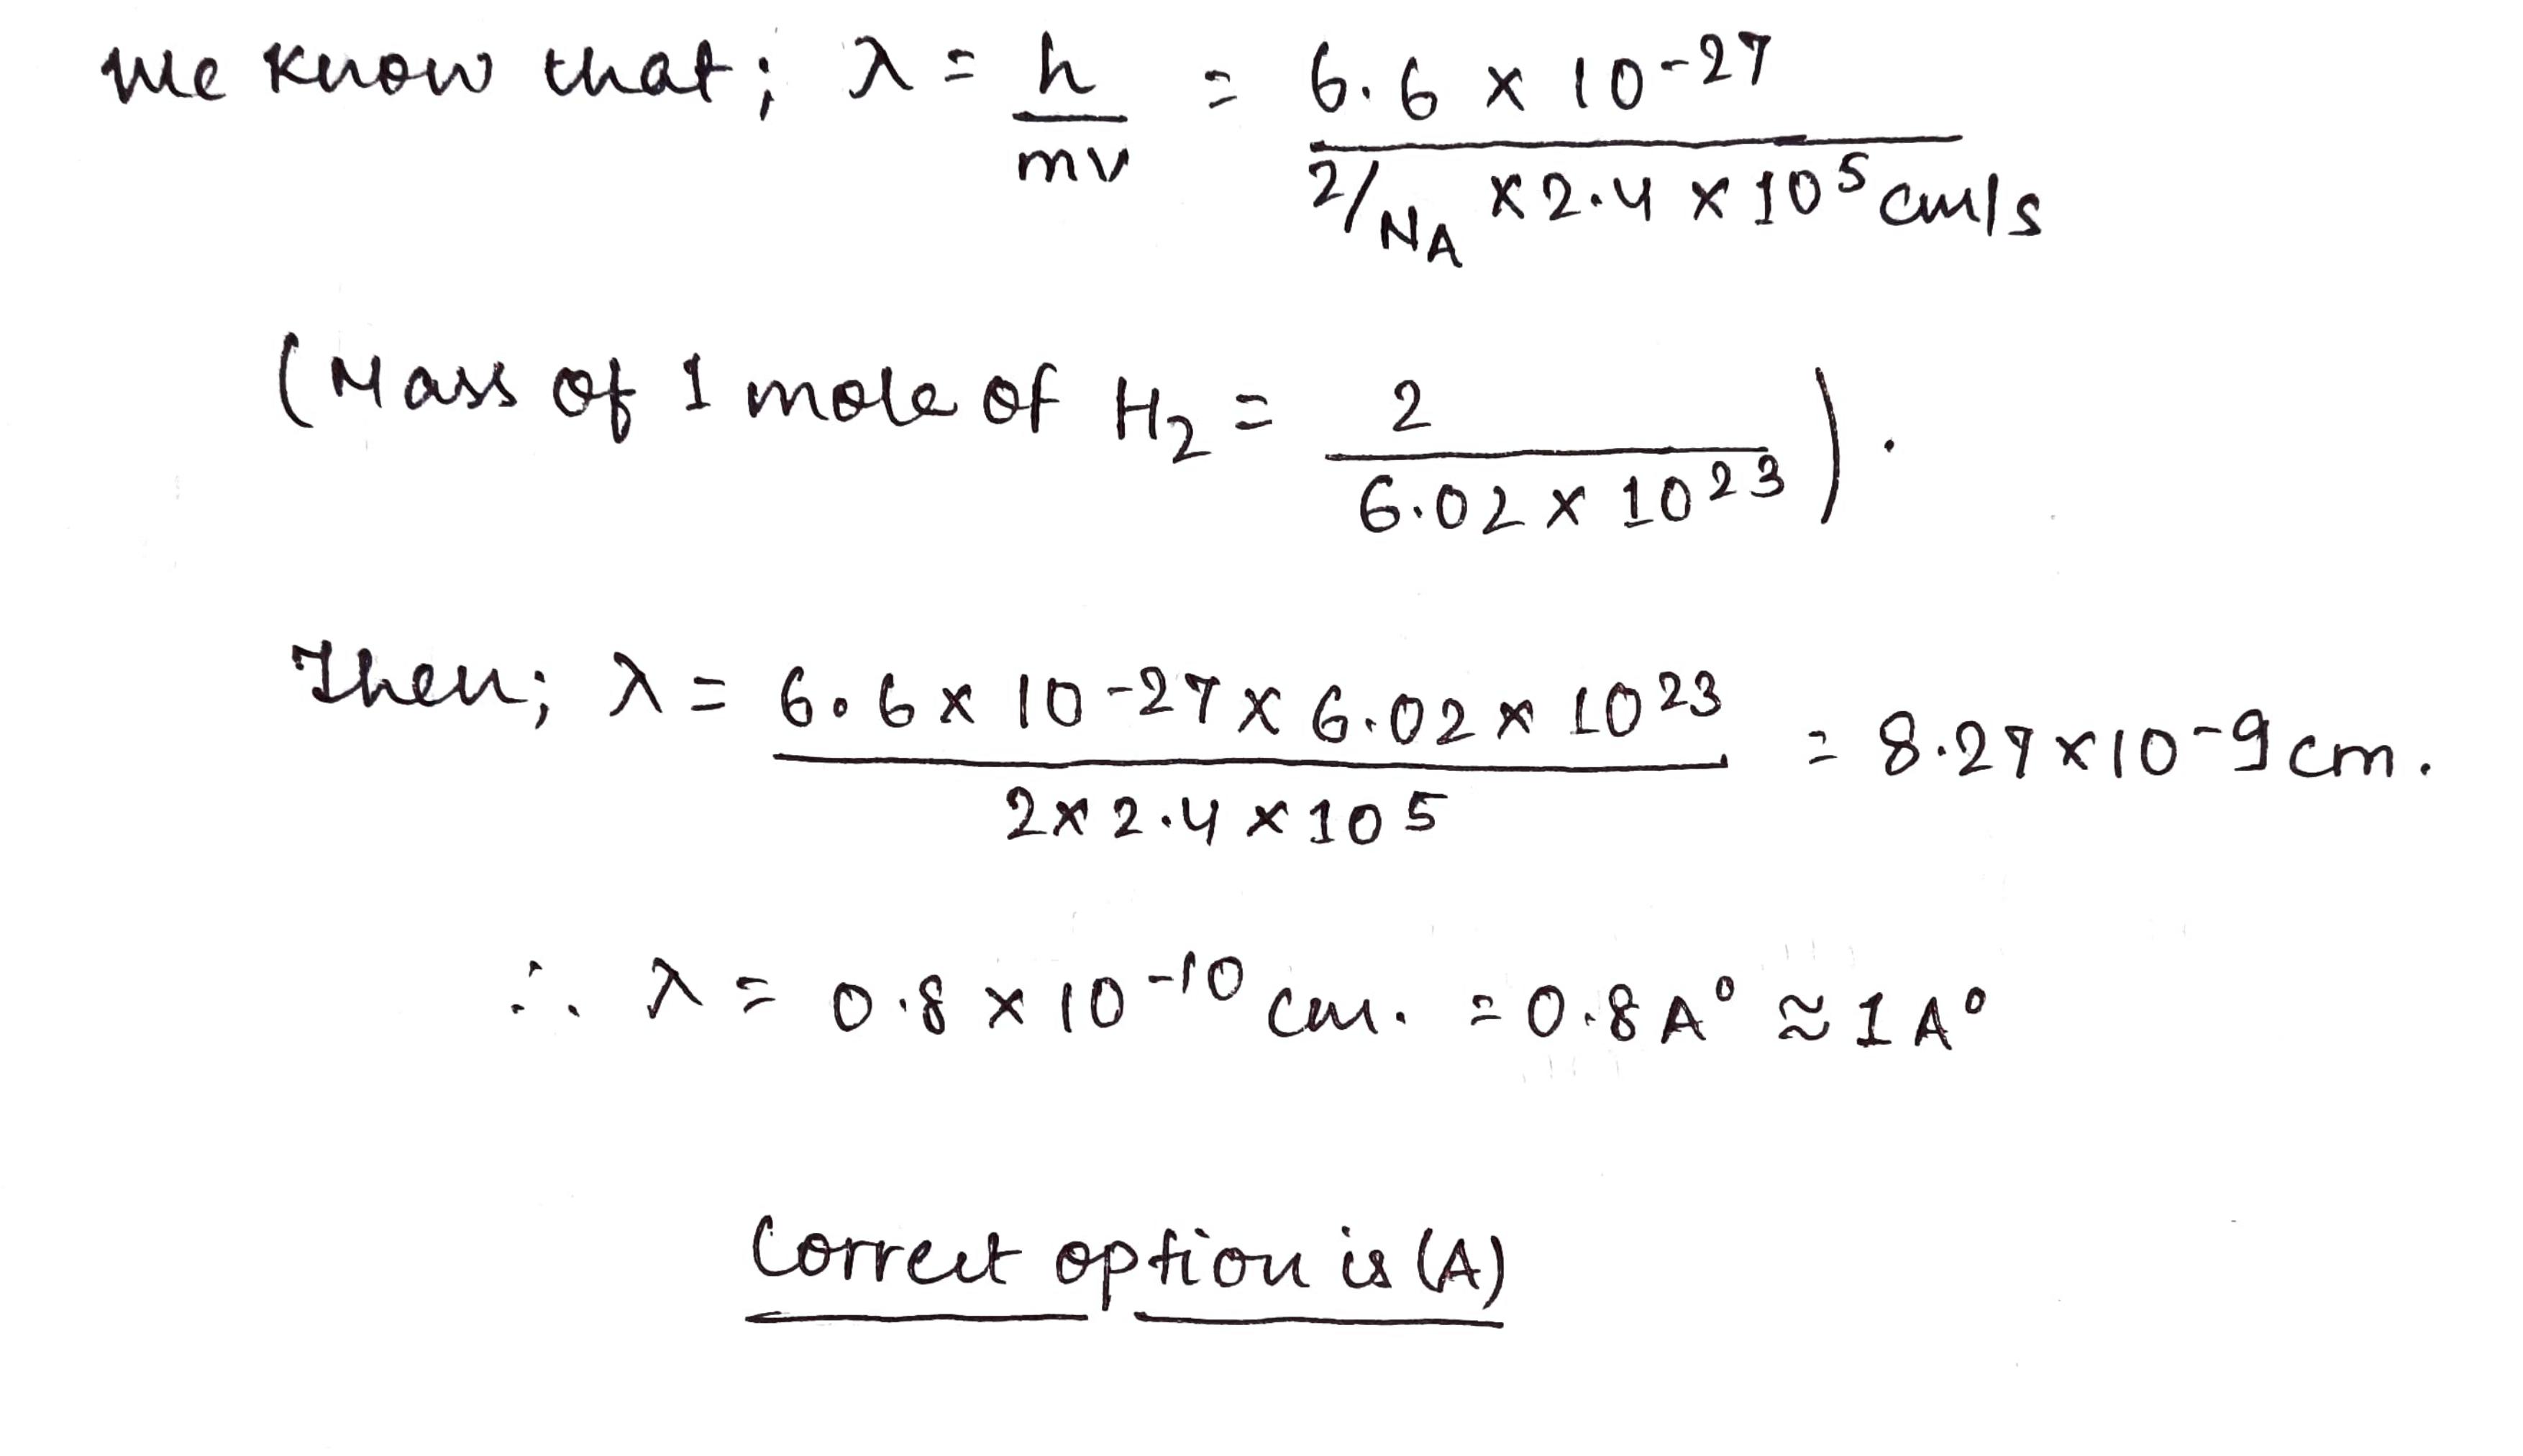 We know that; λ = h/mv = 6.6 × 10-27 / 2/NA × 2.4 × 10⁵ cm/s
(Mass of 1 mole of H₂ = 2 / 6.02 × 10²³).
Then; λ = 6.6 × 10-27 × 6.02 × 10²³ / 2 × 2.4 × 105 = 8.27 × 10-9 cm.
∴ λ = 0.8 × 10⁻¹⁰ cm. = 0.8 A° ≈ 1 A°
Correct option is (A)